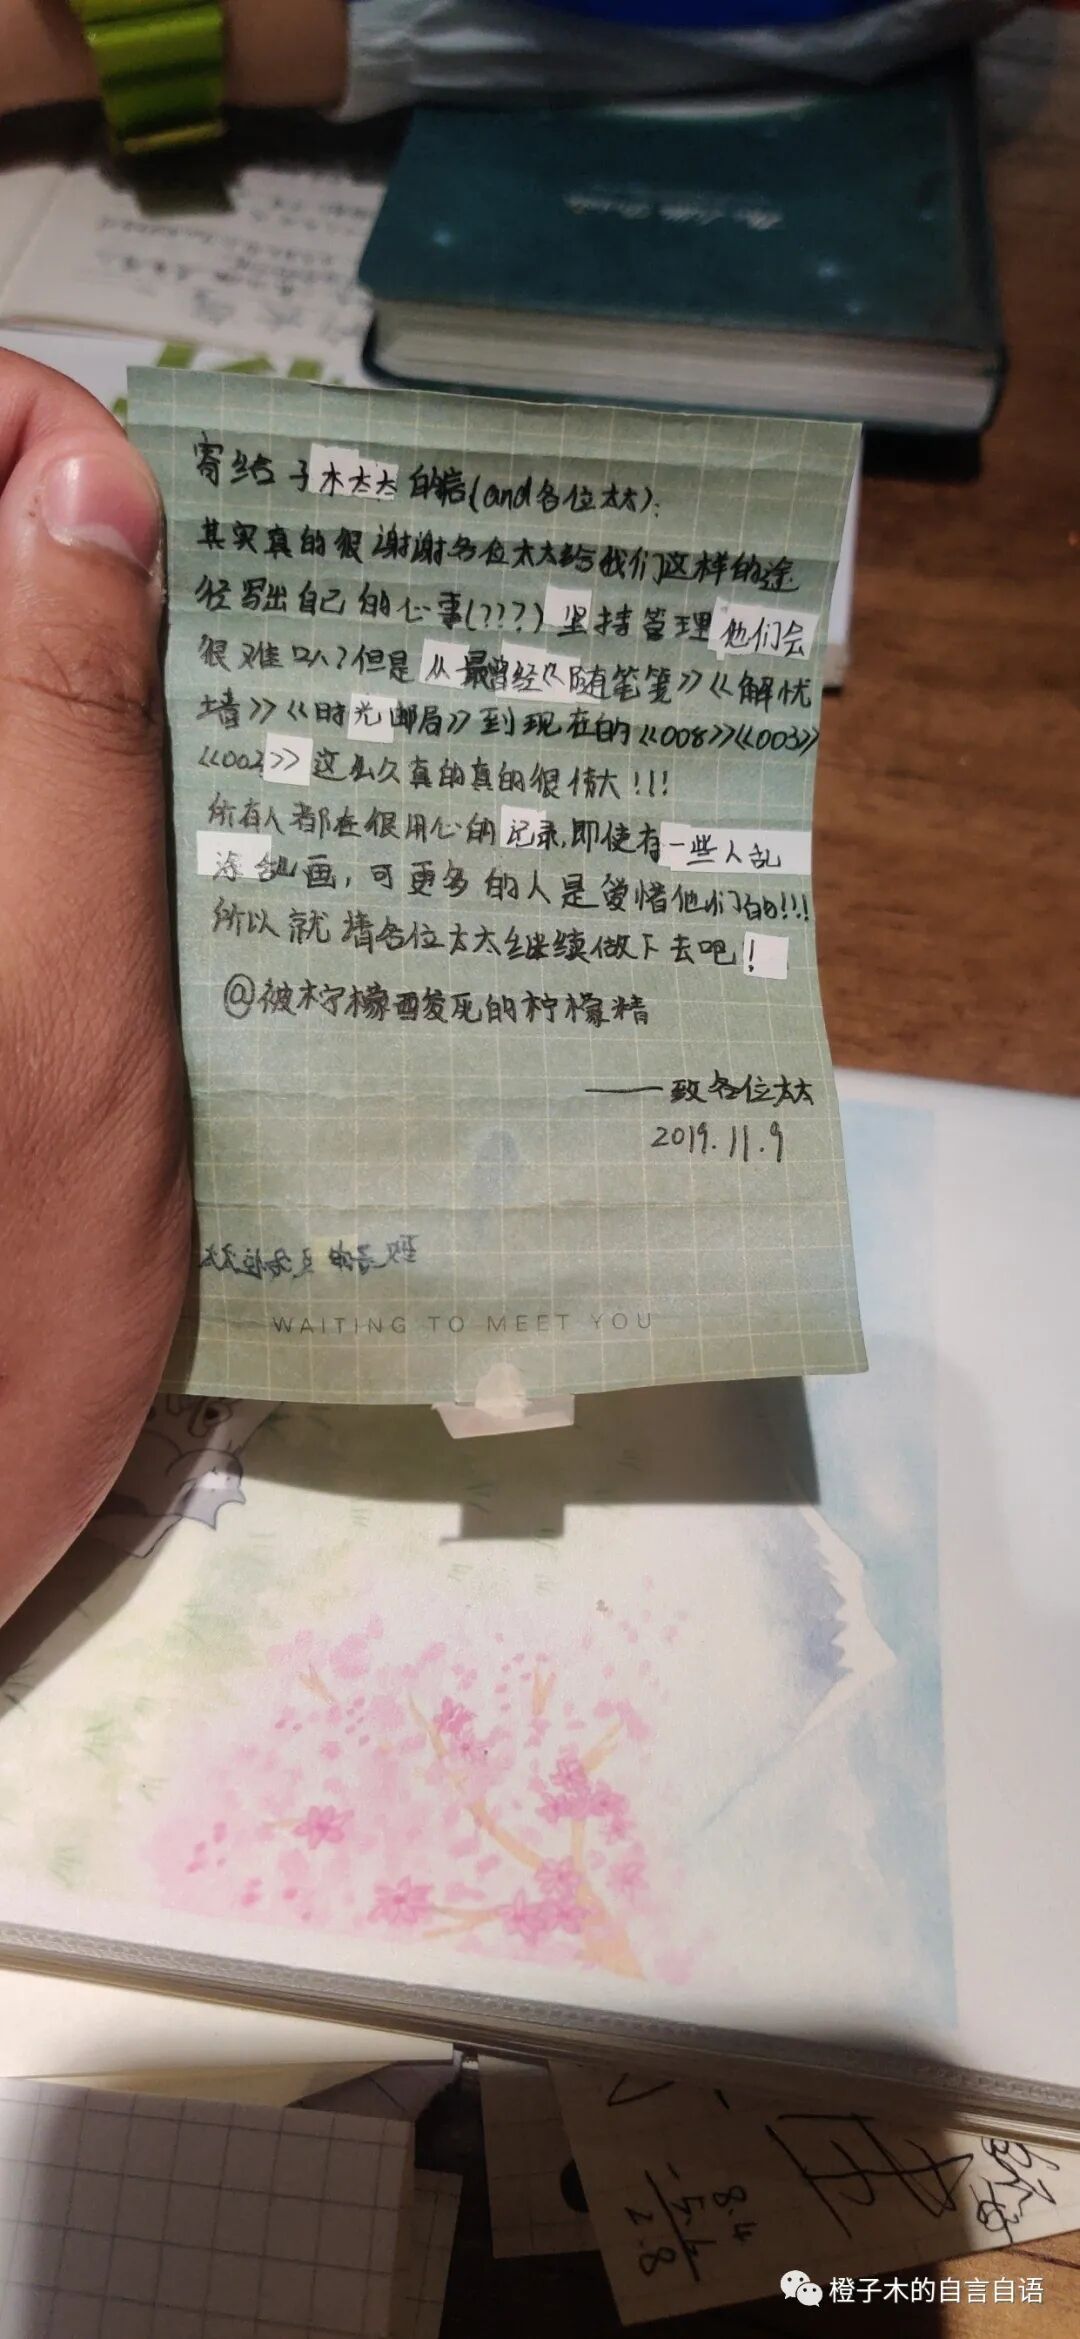 寄给子木太太的信(and各位太太):
其实真的很谢谢各位太太给我们这样的途
径写出自己的心事(???)坚持管理他们会
很难叭?但是从最曾经《随笔笺》《解忧
墙》《时光邮局》到现在的《008》《003》
《002》这么久真的真的很伟大!!!
所有人都在很用心的记录,即使有一些人乱
涂乱画,可更多的人是爱惜他们的!!!
所以就请各位太太继续做下去吧!
@被柠檬酸死的柠檬精
——致各位太太
2019.11.9
WAITING TO MEET YOU
8.4
-5.6
2.8
橙子木的自言自语